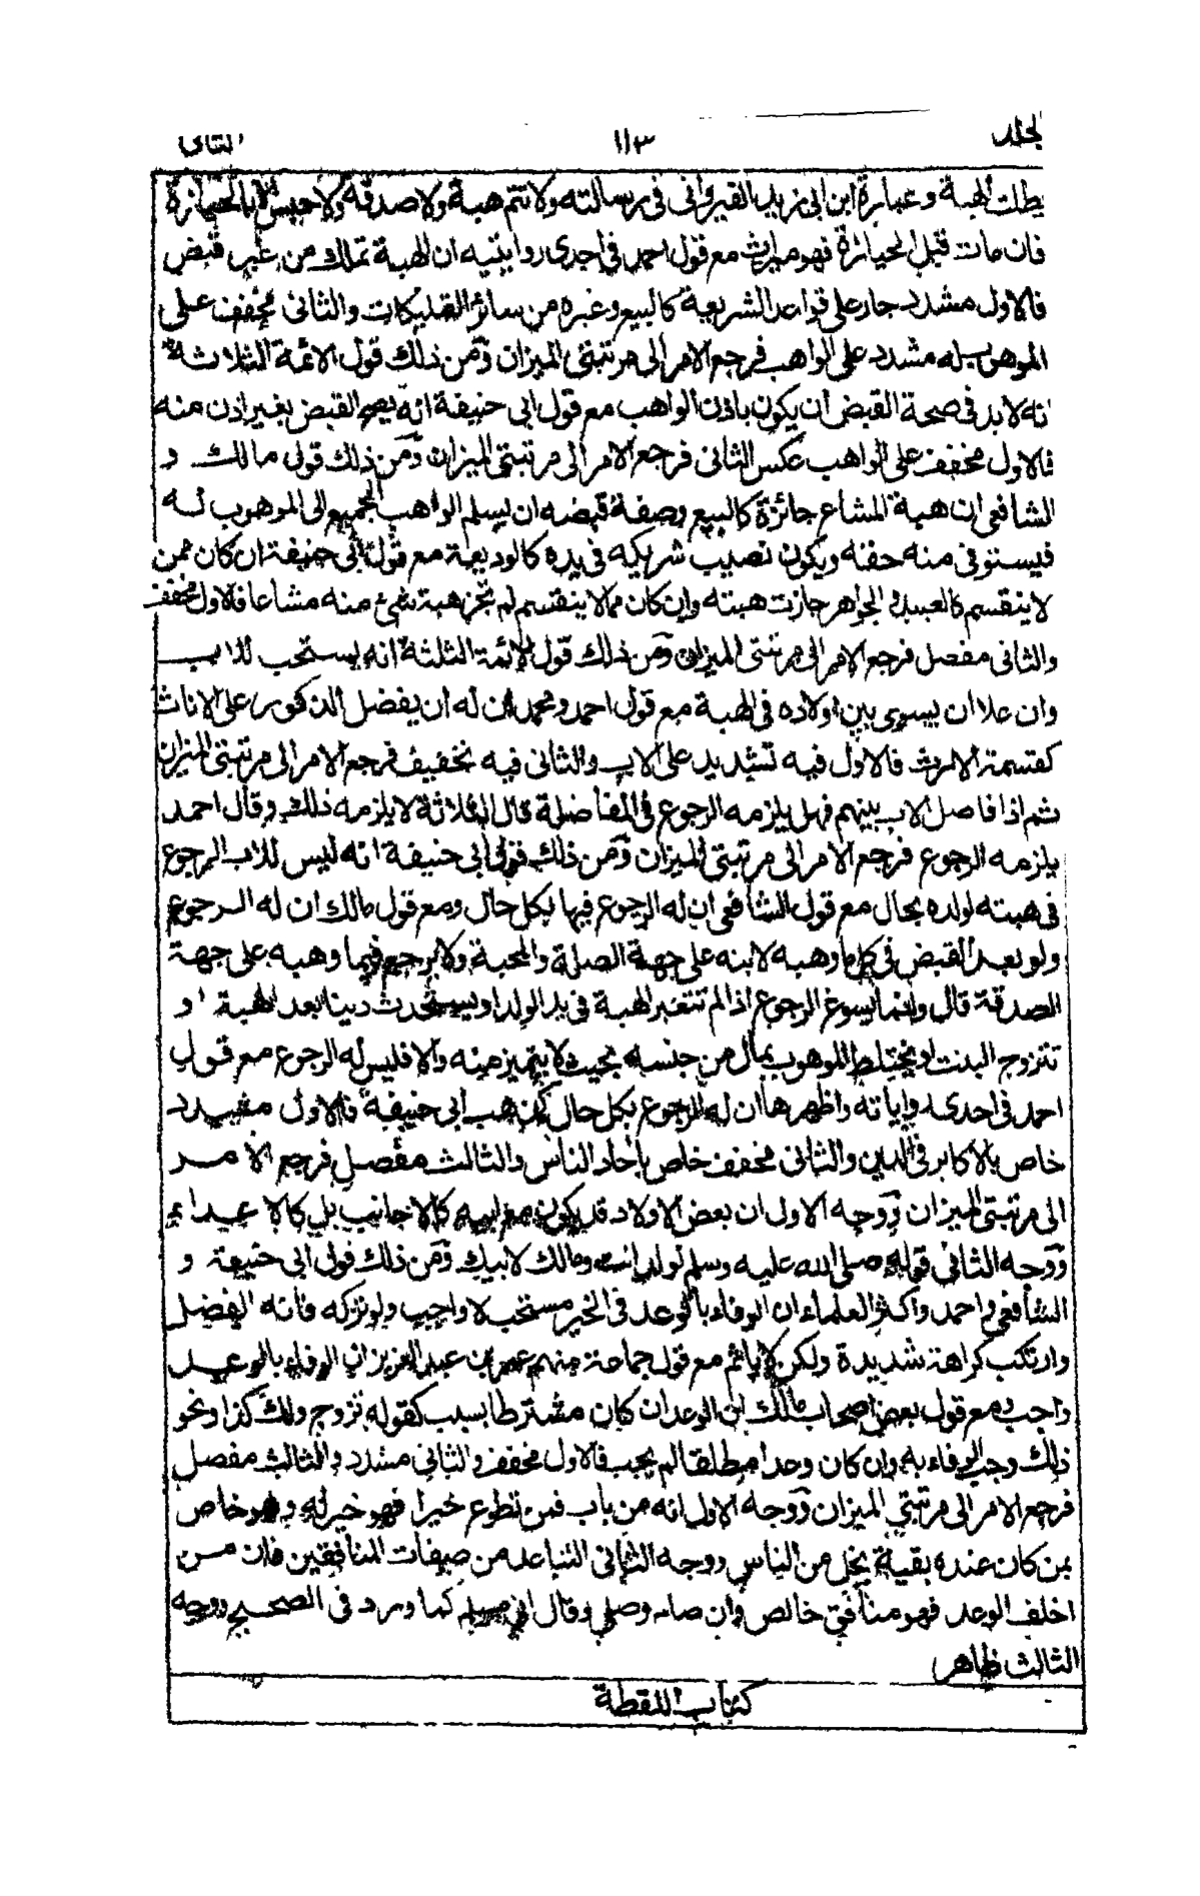 الجلد ١١٣ الثانى
بطلت الهبة وعبارة ابن ابى زيد القيروانى فى رسالته ولا تتم هبة ولا صدقة ولا حبس الا بالحيازة
فان مات قبل الحيازة فهو ميراث مع قول احمد فى احدى روايتيه ان الهبة تملك من غير قبض
فالاول مشدد جار على قواعد الشريعة كالبيع وغيره من سائر التمليكات والثانى مخفف على
الموهوب له مشدد على الواهب فرجع الامر الى مرتبتى الميزان ومن ذلك قول الائمة الثلاثة
انه لابد فى صحة القبض ان يكون باذن الواهب مع قول ابى حنيفة انه يصح القبض بغير اذن منه
فالاول مخفف على الواهب عكس الثانى فرجع الامر الى مرتبتى الميزان ومن ذلك قول مالك و
الشافعى ان هبة المشاع جائزة كالبيع وصفة قبضه ان يسلم الواهب الجميع الى الموهوب له
فيستوفى منه حقه ويكون نصيب شريكه فى يده كالوديعة مع قول ابى حنيفة ان كان ممن
لا ينقسم كالعبيد والجواهر جازت هبته وان كان مما لا ينقسم لم تجز هبة شئ منه مشاعا فالاول مخفف
والثانى مفصل فرجع الامر الى مرتبتى الميزان ومن ذلك قول الائمة الثلثة انه يستحب للاب
وان علا ان يسوى بين اولاده فى الهبة مع قول احمد ومحمد ان له ان يفضل الذكور على الاناث
كقسمة الارث فالاول فيه تشديد على الاب والثانى فيه تخفيف فرجع الامر الى مرتبتى الميزان
ثم اذا فاصل الاب بينهم فهل يلزمه الرجوع فى المفاضلة قال الثلاثة لا يلزمه ذلك وقال احمد
يلزمه الرجوع فرجع الامر الى مرتبتى الميزان ومن ذلك قول ابى حنيفة انه ليس للاب الرجوع
فى هبته لولده بحال مع قول الشافعى ان له الرجوع فيها بكل حال ومع قول مالك ان له الرجوع
ولو بعد القبض فى كل ما وهبه لابنه على جهة الصلة والمحبة ولا يرجع فيما وهبه على جهة
الصدقة قال وانما يسوغ الرجوع اذا لم تتغير الهبة فى يد الولد او يستحدث دينا بعد الهبة او
تتزوج البنت او يختلط الموهوب بمال من جنسه بحيث لا يتميز منه والا فليس له الرجوع مع قول
احمد فى احدى رواياته واظهرها ان له الرجوع بكل حال كمذهب ابى حنيفة فالاول مشدد
خاص بالاكابر فى الدين والثانى مخفف خاص باحاد الناس والثالث مفصل فرجع الامر
الى مرتبتى الميزان ووجه الاول ان بعض الاولاد قد يكون مع ابيه كالاجانب بل كالاعداء
ووجه الثانى قوله صلى الله عليه وسلم لولد انت ومالك لابيك ومن ذلك قول ابى حنيفة و
الشافعى واحمد واكثر العلماء ان الوفاء بالوعد فى الخير مستحب لا واجب ولو تركه فاته الفضل
وارتكب كراهة شديدة ولكن لا ياثم مع قول جماعة منهم عمر بن عبد العزيز ان الوفاء بالوعد
واجب ومع قول بعض اصحاب مالك ان الوعد ان كان مشترطا بسبب كقوله تزوج ولك كذا ونحو
ذلك وجب الوفاء به وان كان وعدا مطلقا لم يجب فالاول مخفف والثانى مشدد والثالث مفصل
فرجع الامر الى مرتبتى الميزان ووجه الاول انه من باب فمن تطوع خيرا فهو خير له وهو خاص
بمن كان عنده بقية بخل من الناس ووجه الثانى التباعد من صفات المنافقين فان من
اخلف الوعد فهو منافق خالص وان صام وصلى وقال انى مسلم كما ورد فى الصحيح ووجه
الثالث ظاهر
كتاب اللقطة